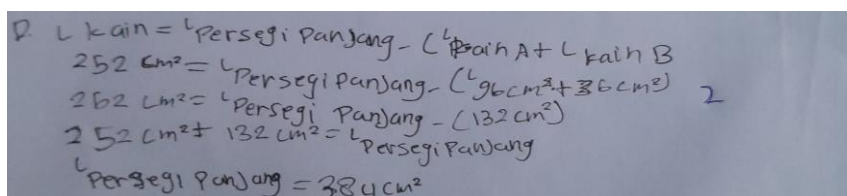 D. L kain = L Persegi Panjang - (L kain A + L kain B
252 cm² = L Persegi Panjang - (L 96 cm² + 36 cm²)
252 cm² = L Persegi Panjang - (132 cm²)
2
252 cm² + 132 cm² = L Persegi Panjang
L Persegi Panjang = 384 cm²